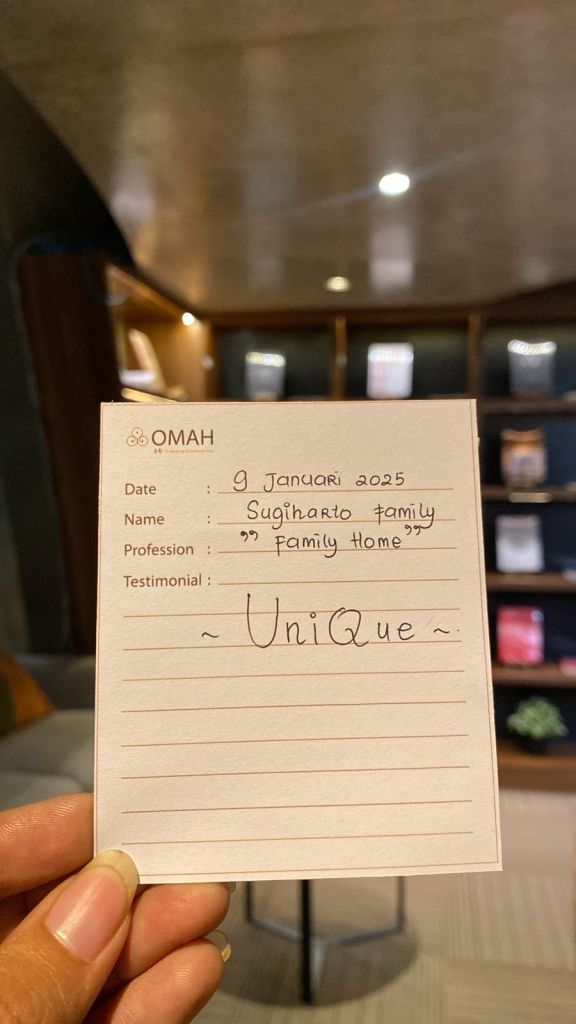 OMAH
Date : 9 Januari 2025
Name : Sugiharto Family
Profession : " Family Home "
Testimonial :
~ UniQue ~.